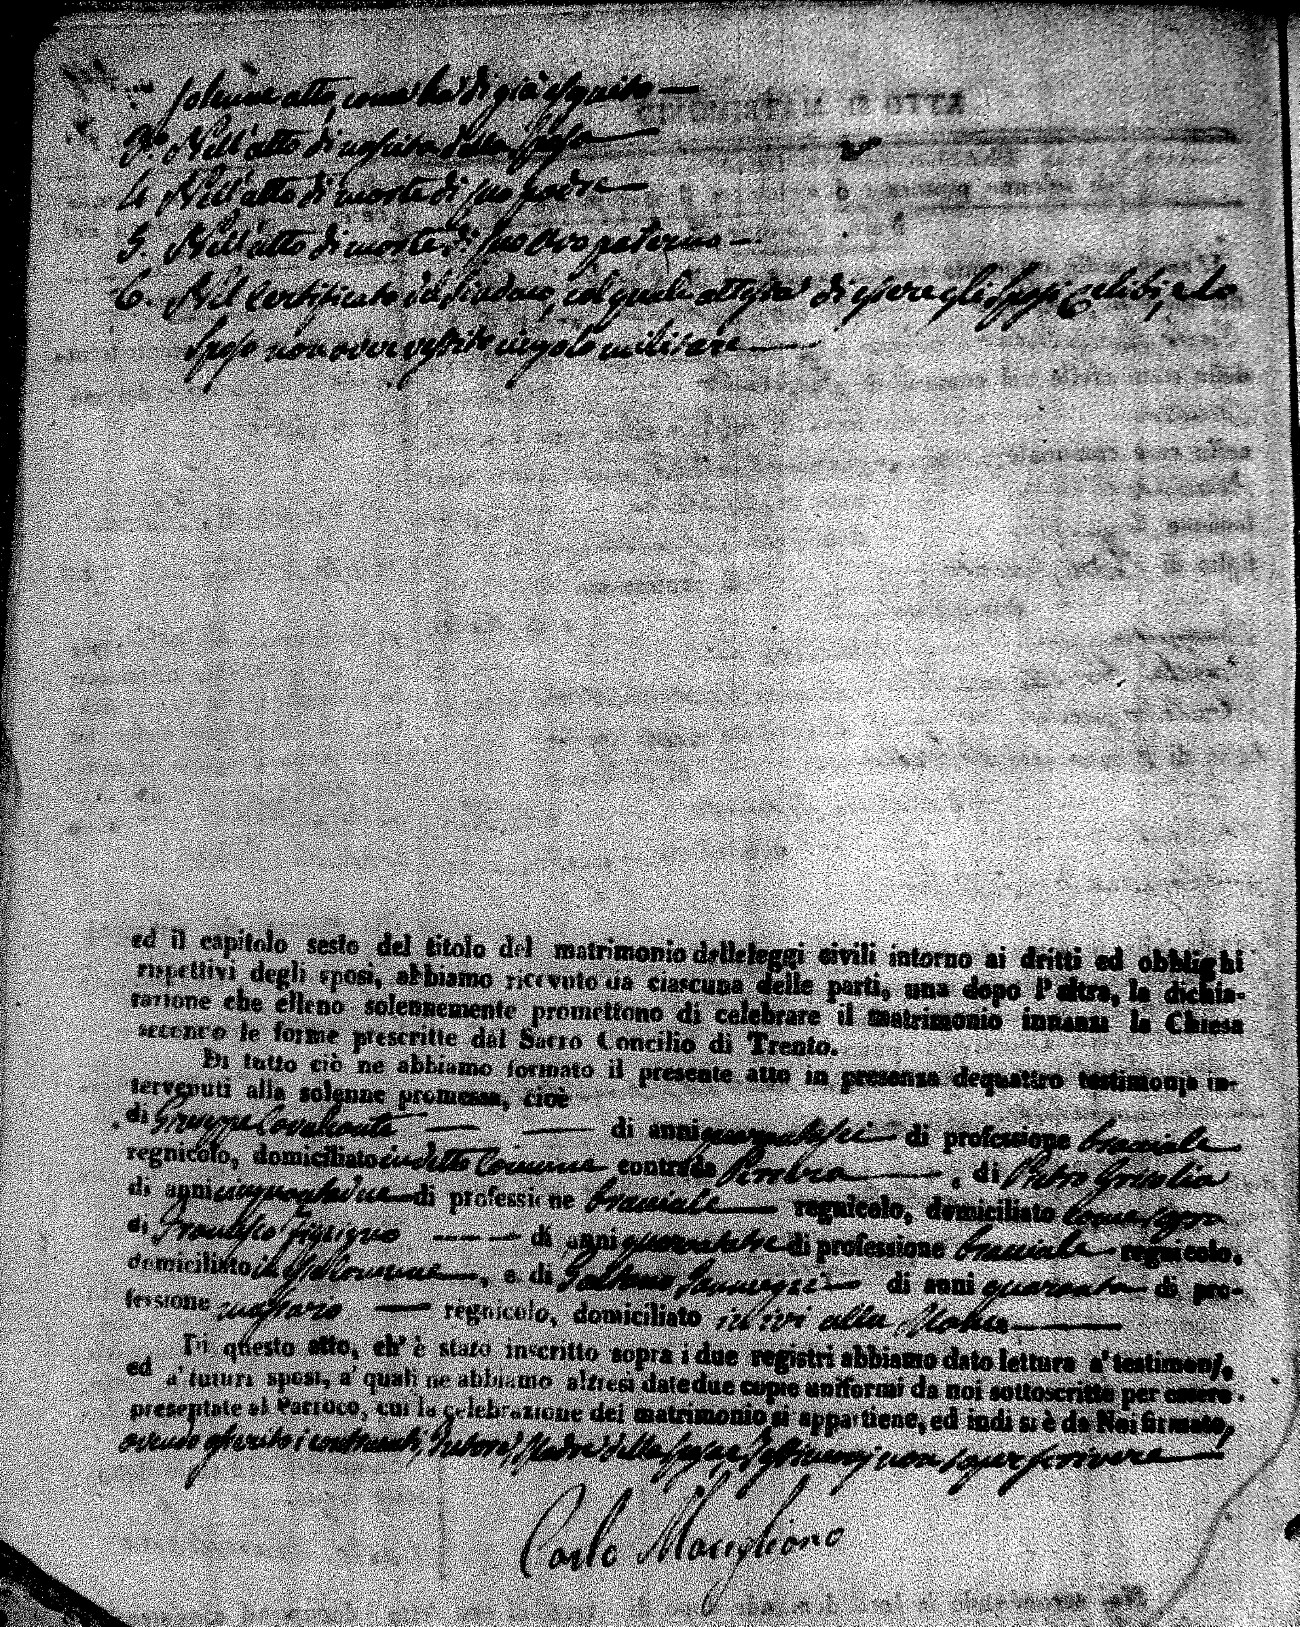 solenne atto, come ha di già eseguito —
3.° Nell'atto di nascita della sposa —
4. Nell'atto di morte di suo padre —
5. Nell'atto di morte di suo avo paterno —
6. Nel certificato del Sindaco, col quale attesta di essere gli sposi celibi, e lo
sposo non aver vestito cingolo militare —
ed il capitolo sesto del titolo del matrimonio delle leggi civili intorno ai dritti ed obblighi
rispettivi degli sposi, abbiamo ricevuto da ciascuna delle parti, una dopo l'altra, la dichia-
razione che elleno solennemente promettono di celebrare il matrimonio innanzi la Chiesa
secondo le forme prescritte dal Sacro Concilio di Trento.
Di tutto ciò ne abbiamo formato il presente atto in presenza de quattro testimonj in-
tervenuti alla solenne promessa, cioè
di Giuseppe Cavalcante — — di anni quarantasei — di professione bracciale —
regnicolo, domiciliato in detto Comune contrada — , di Pietro Grisolia
di anni cinquantadue di professione bracciale — regnicolo, domiciliato come sopra
di Francesco — — di anni quarantatre di professione bracciale — regnicolo,
domiciliato in — , e di Gaetano — di anni quaranta di pro-
fessione massaro — regnicolo, domiciliato in ivi alla —
Di questo atto, ch' è stato inscritto sopra i due registri abbiamo dato lettura a' testimonj,
ed a' futuri sposi, a' quali ne abbiamo altresì date due copie uniformi da noi sottoscritte per essere
presentate al Parroco, cui la celebrazione del matrimonio si appartiene, ed indi si è da Noi firmato,
avendo asserito i contraenti, Madre della sposa e Testimonj non saper scrivere —
Carlo Mariglione